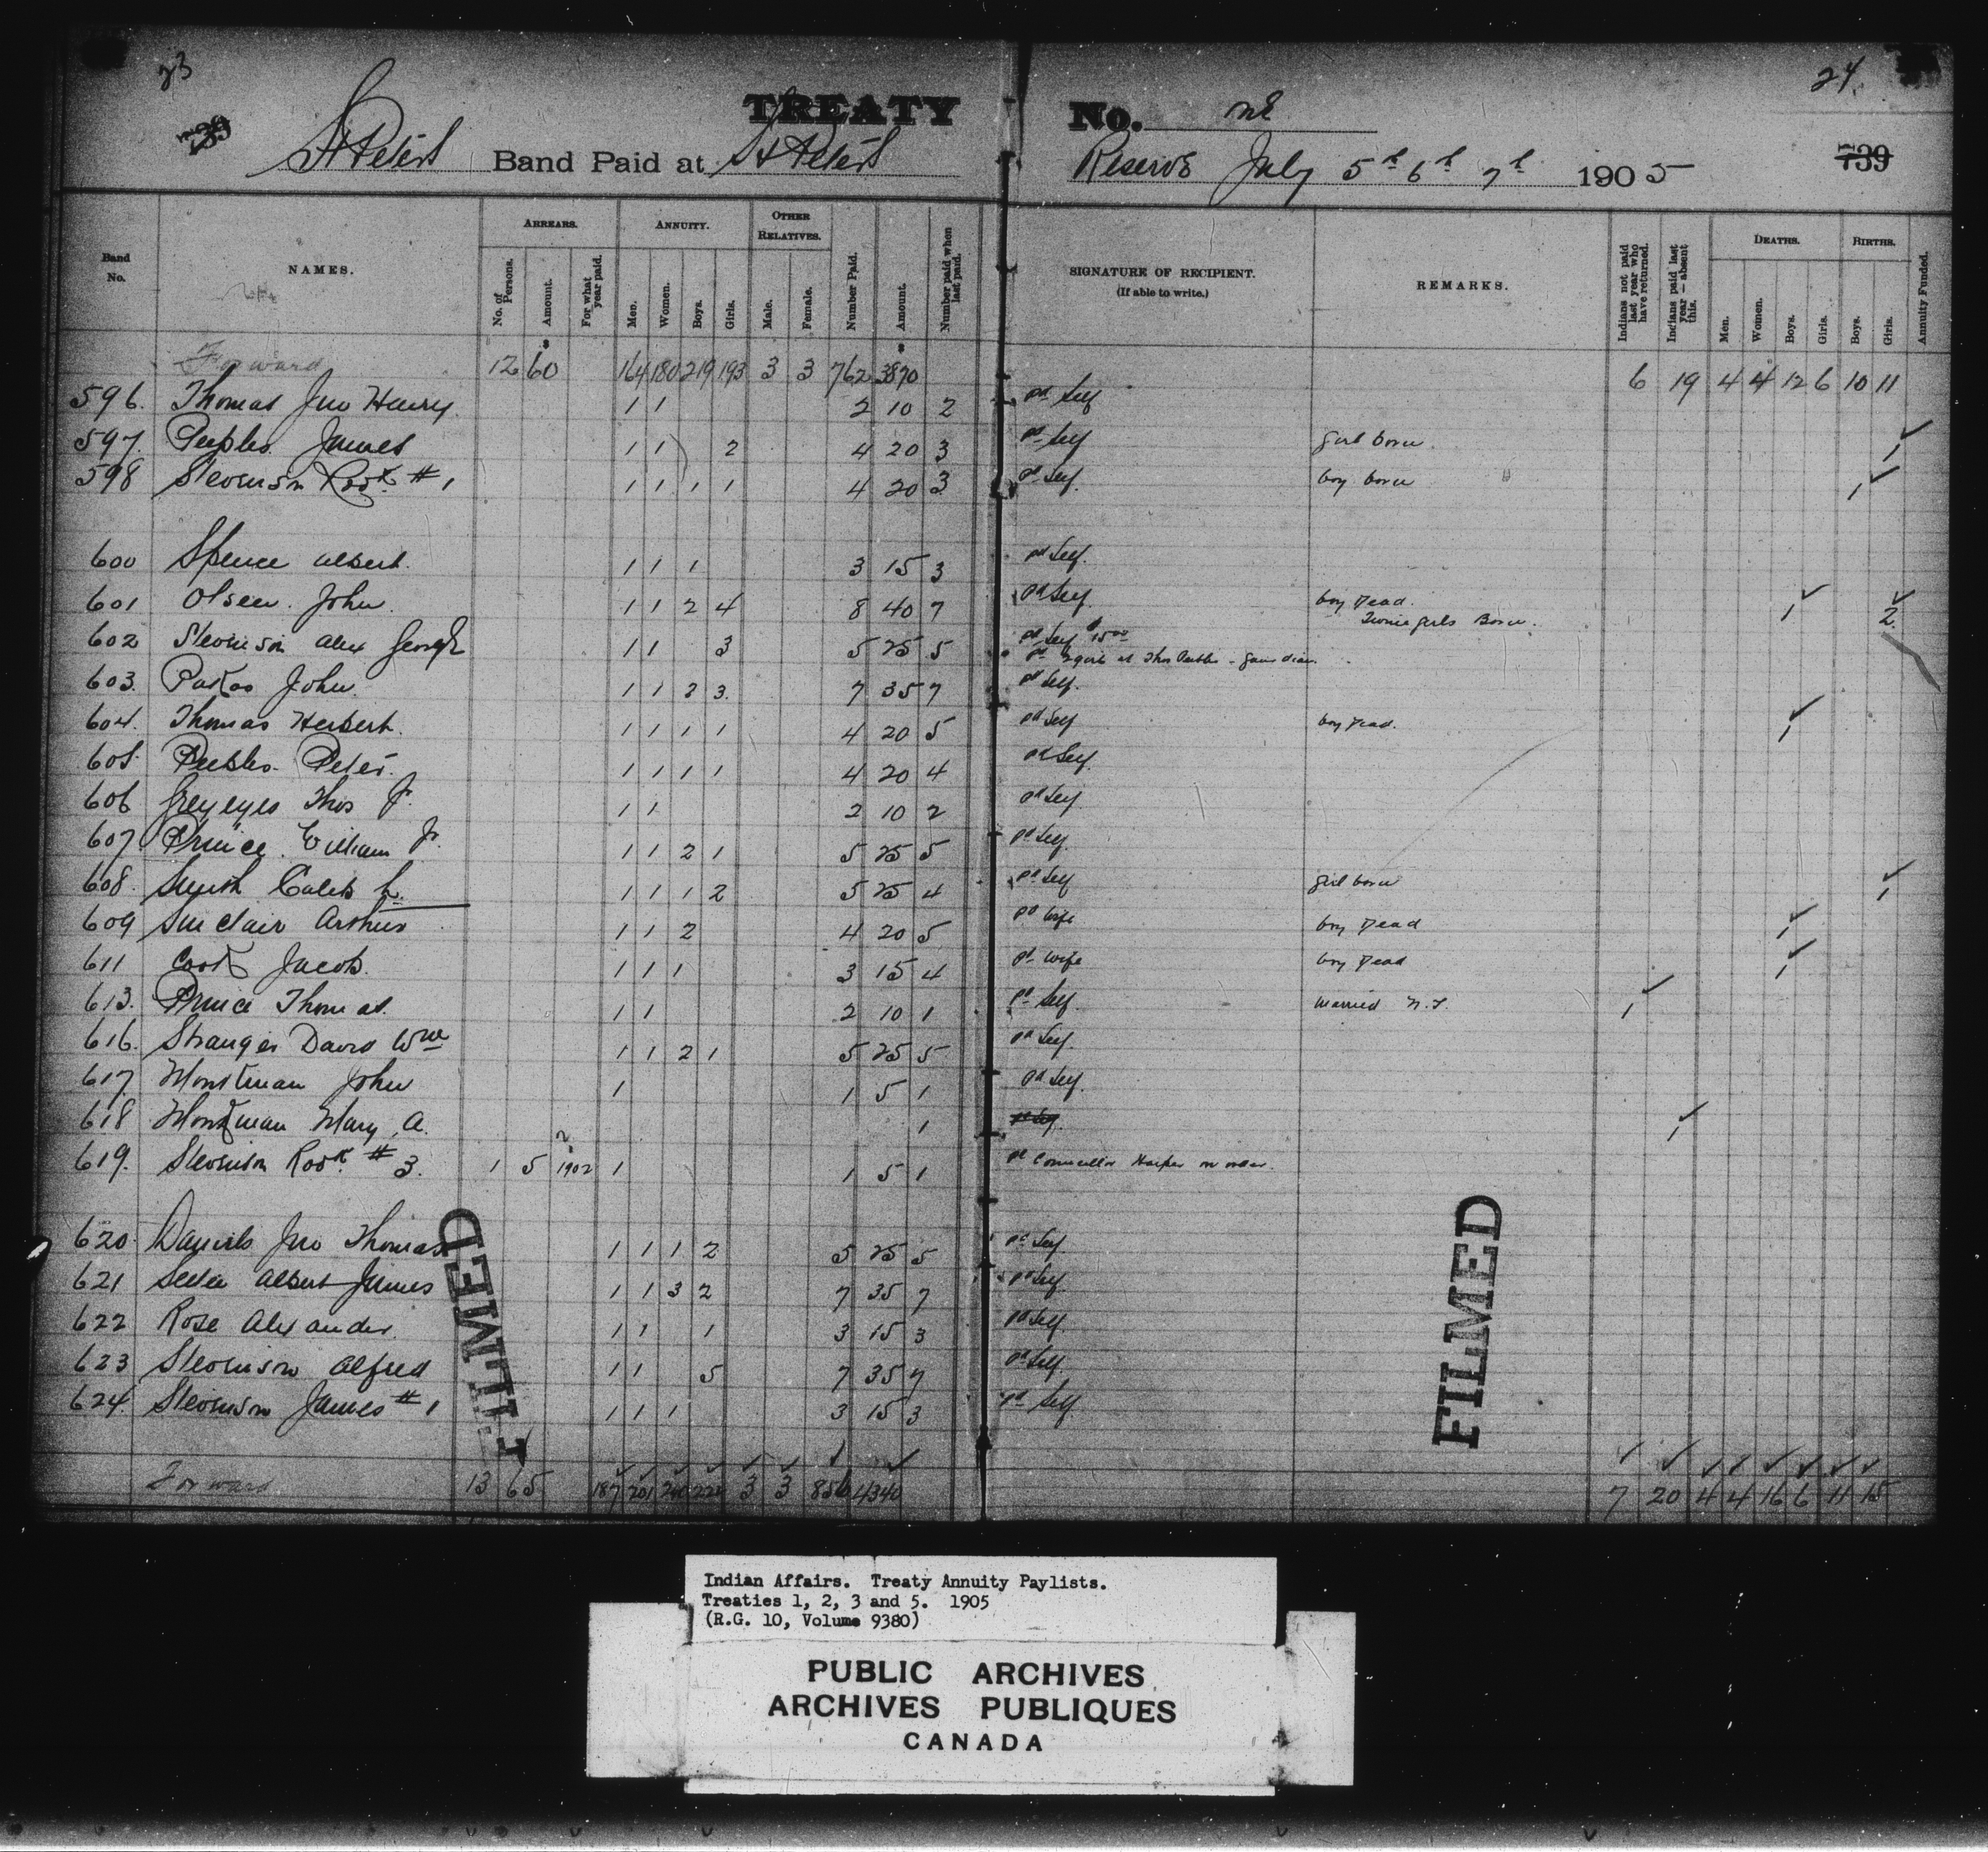 23 24.
TREATY No. One
739 St Peters Band Paid at St Peters Reserve July 5th 6th 7th 1905 739
Band No. NAMES. ARREARS. No. of Persons. Amount. For what year paid. ANNUITY. Men. Women. Boys. Girls. OTHER RELATIVES. Male. Female. Number Paid. Amount. Number paid when last paid. SIGNATURE OF RECIPIENT. (If able to write.) REMARKS. Indians not paid last year who have returned. Indians paid last year—absent this. DEATHS. Men. Women. Boys. Girls. BIRTHS. Boys. Girls. Annuity Funded.
$ $
Forward 12 60 164 180 219 193 3 3 762 3870 6 19 4 4 12 6 10 11
596. Thomas Jno Henry 1 1 2 10 2 pd Self
597. Peebles James 1 1 2 4 20 3 pd Self girl born 1
598 Stevenson Robt # 1 1 1 1 1 4 20 3 pd Self. boy born 1
600 Spence Albert. 1 1 1 3 15 3 pd Self.
601 Olsen. John 1 1 2 4 8 40 7 pd Self boy Dead. Twins girls Born. 1 2
602 Stevenson Alex George 1 1 3 5 25 5 pd Self $15.00
pd 2 girls at Thos Peebles - Guardian.
603. Pakoo John. 1 1 2 3. 7 35 7 pd Self.
604. Thomas Herbert. 1 1 1 1 4 20 5 pd Self boy Dead. 1
605. Peebles Peter. 1 1 1 1 4 20 4 pd Self.
606 Greyeyes Thos Jr. 1 1 2 10 2 pd Self
607. Prince. William Jr. 1 1 2 1 5 25 5 pd Self.
608. Smith Caleb L. 1 1 1 2 5 25 4 pd Self girl born 1
609 Sinclair Arthur 1 1 2 4 20 5 pd wife boy Dead 1
611 Cook Jacob. 1 1 1 3 15 4 pd wife boy Dead 1
613. Prince Thomas. 1 1 2 10 1 pd Self Married N.T. 1
616. Stranger David Wm 1 1 2 1 5 25 5 pd Self.
617. Monkman John 1 1 5 1 pd Self.
618 Monkman Mary A. 1 pd Self. 1
619. Stevenson Robt # 3. 1 5 1902 1 1 5 1 pd Councillor Harper on order.
620. Daniels Jno Thomas 1 1 1 2 5 25 5 pd Self
621 Albert James 1 1 3 2 7 35 7 pd Self
622 Rose Alexander. 1 1 1 3 15 3 pd Self.
623 Stevenson Alfred 1 1 5 7 35 7 pd Self.
624. Stevenson James # 1 1 1 1 3 15 3 pd Self
Forward 13 65 187 201 240 222 3 3 856 4340 7 20 4 4 16 6 11 15
FILMED
FILMED
Indian Affairs. Treaty Annuity Paylists.
Treaties 1, 2, 3 and 5. 1905
(R.G. 10, Volume 9380)
PUBLIC ARCHIVES
ARCHIVES PUBLIQUES
CANADA